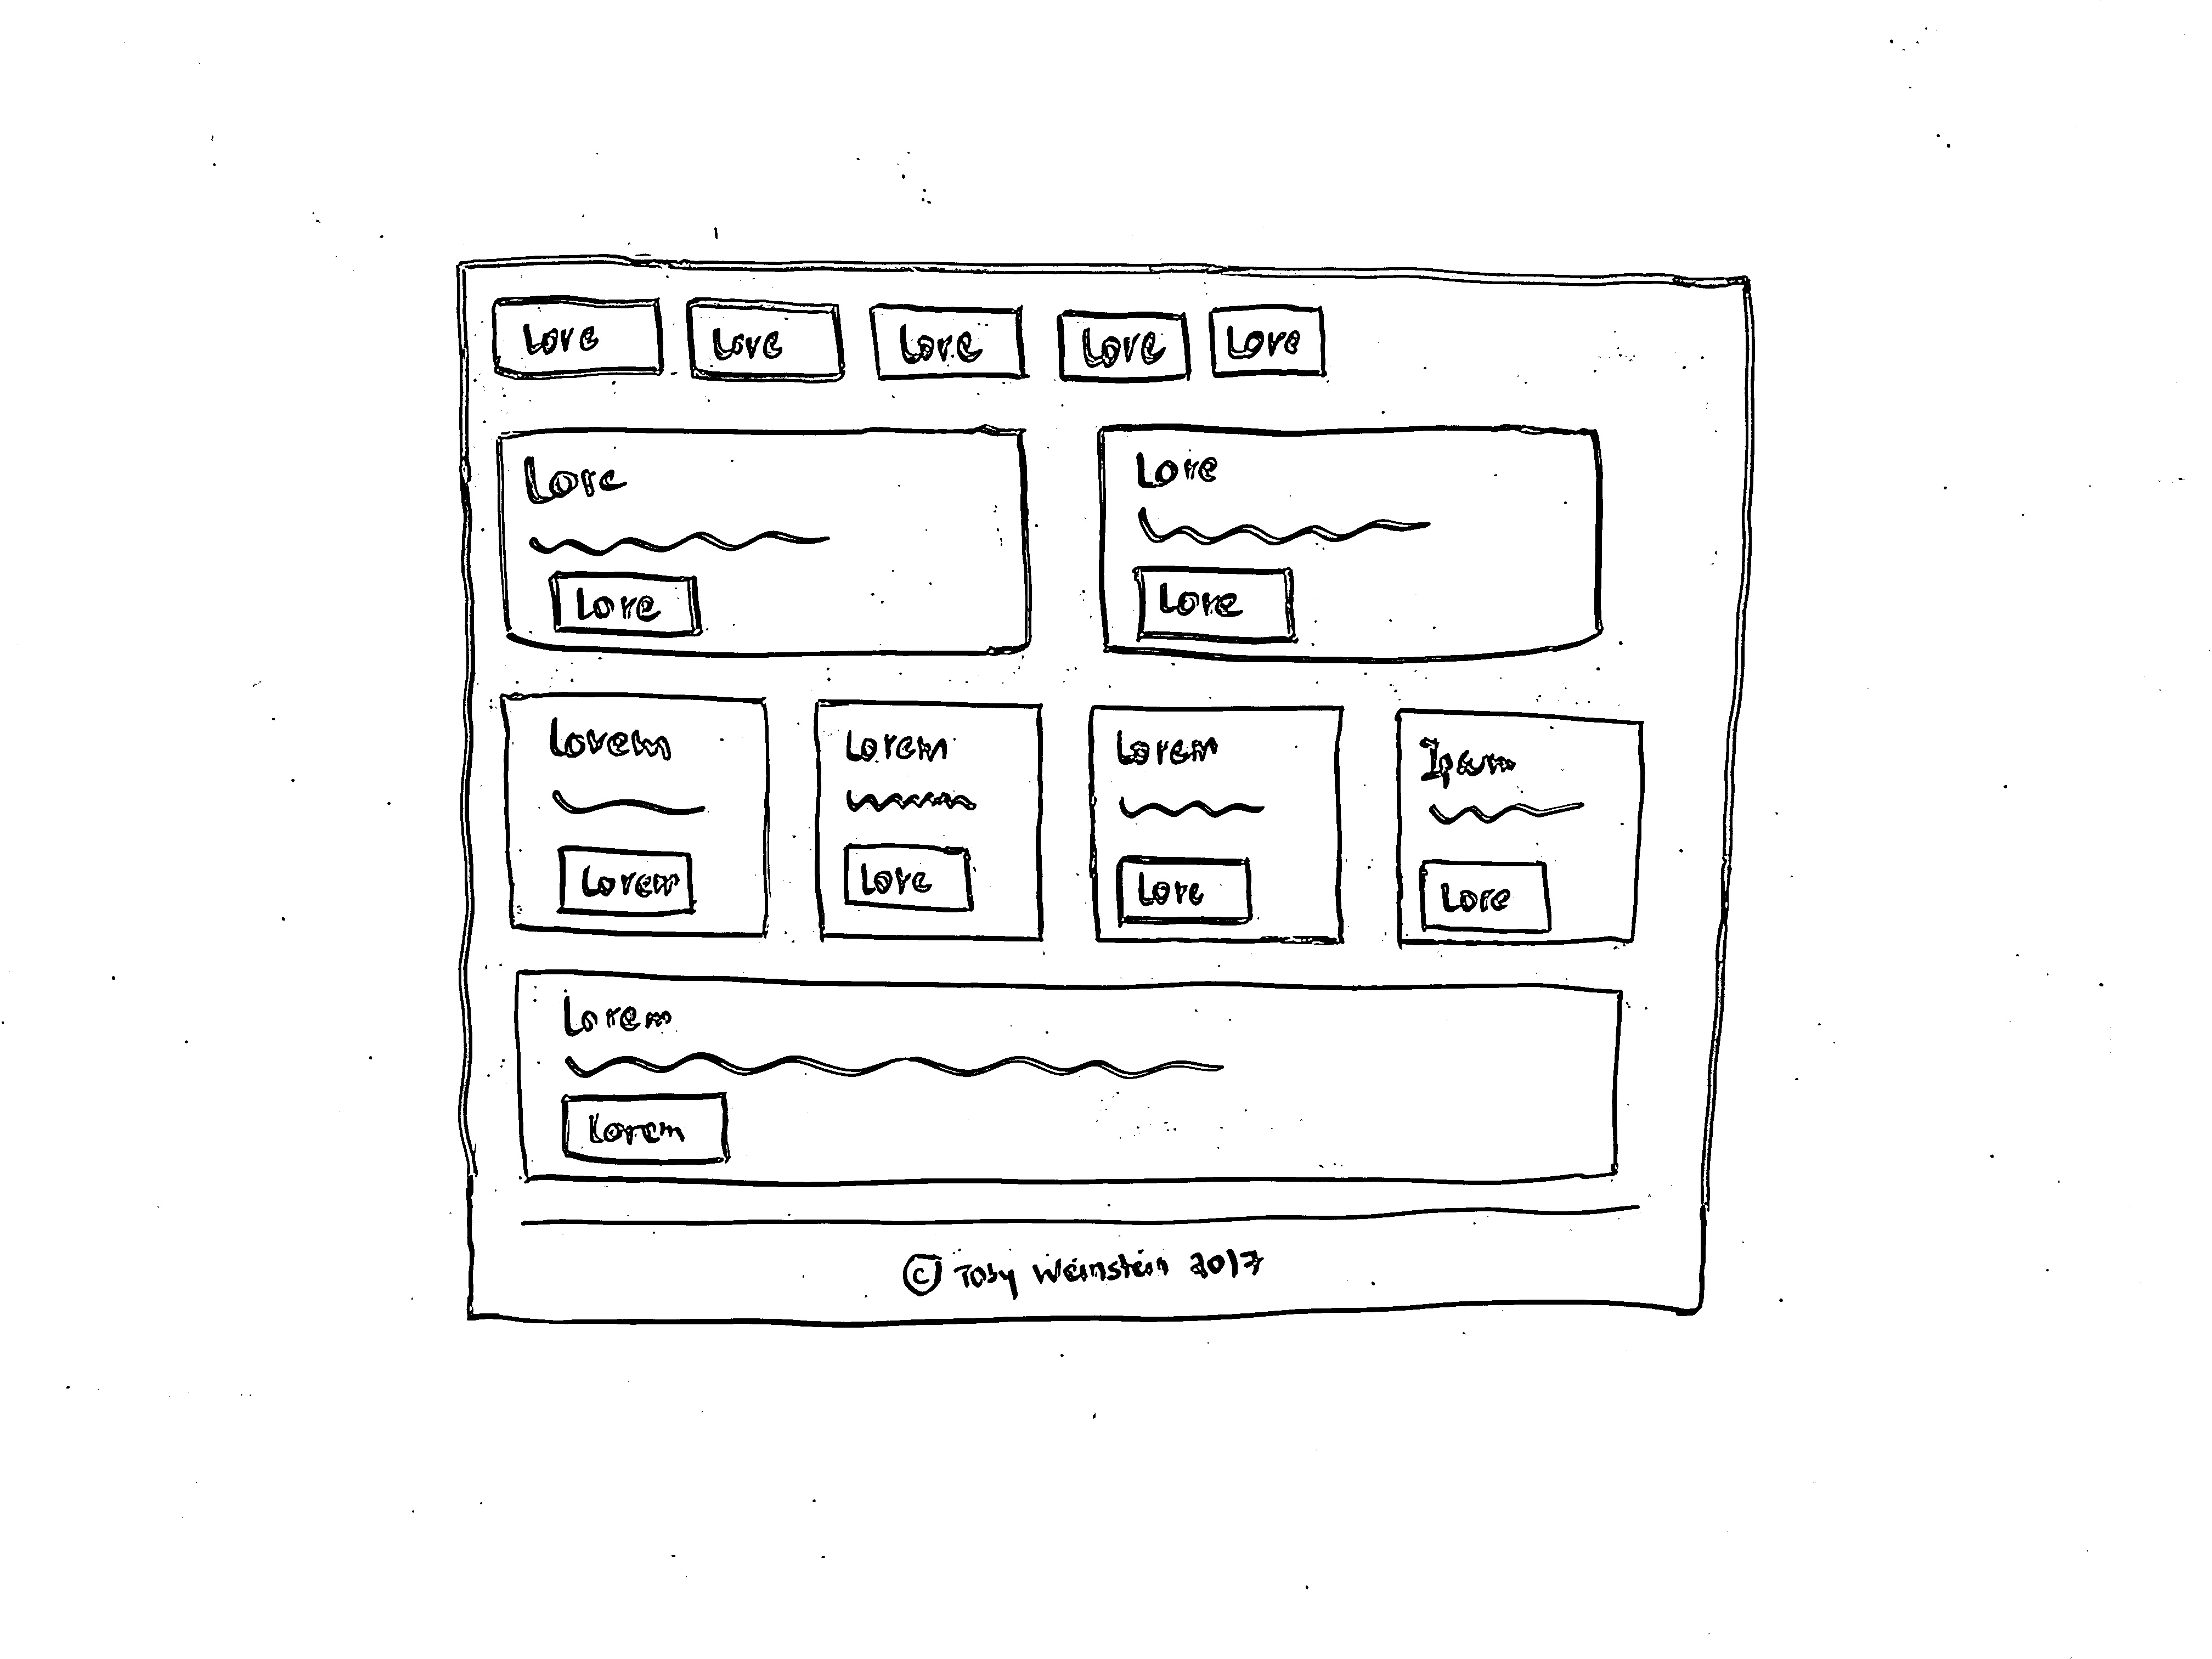 Lore Lore Lore Lore Lore
Lore
Lore
Lore
Lore
Lorem
Lorem
Lorem
Lore
Lorem
Lore
Ipsum
Lore
Lorem
Lorem
© Toby Weinstein 2017